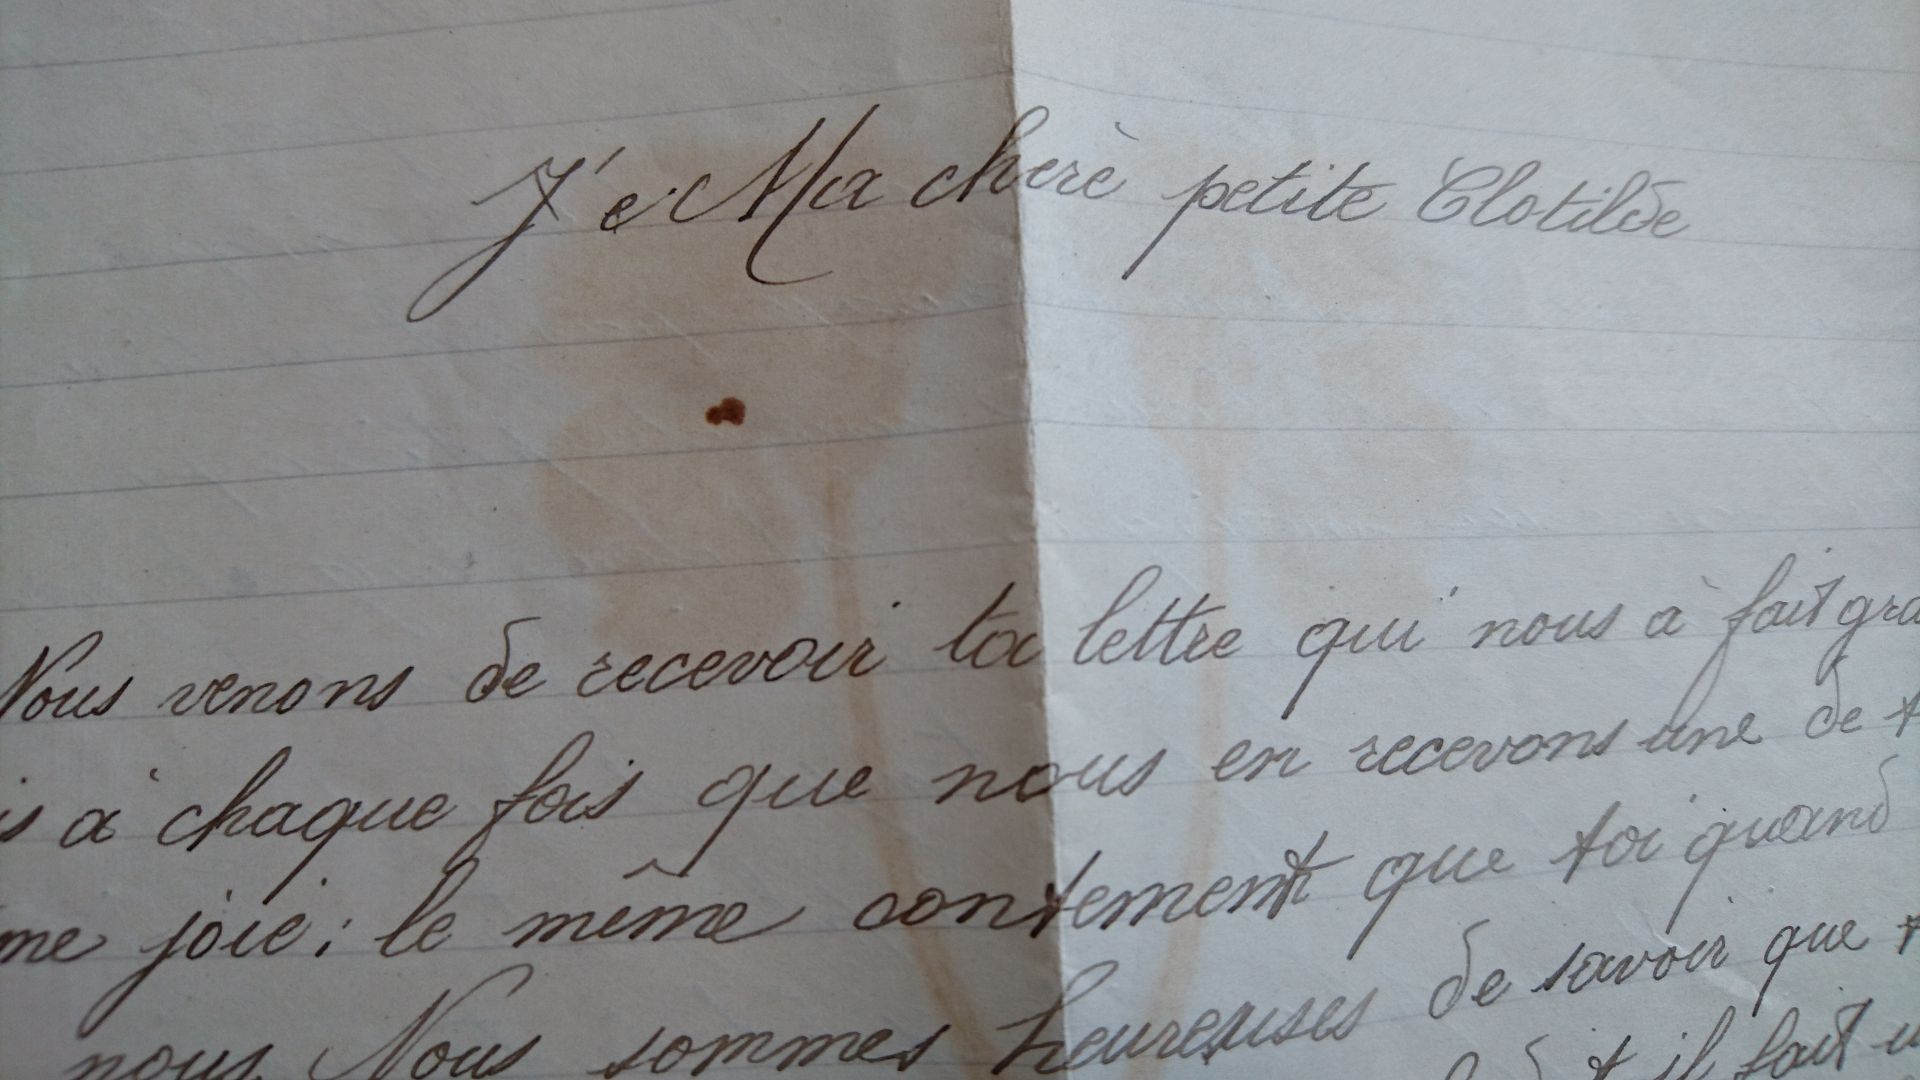 J'e Ma chère petite Clotilde
Nous venons de recevoir ta lettre qui nous a fait
à chaque fois que nous en recevons une de
joie; le même contentement que toi quand
nous. Nous sommes heureuses de savoir que
il fait